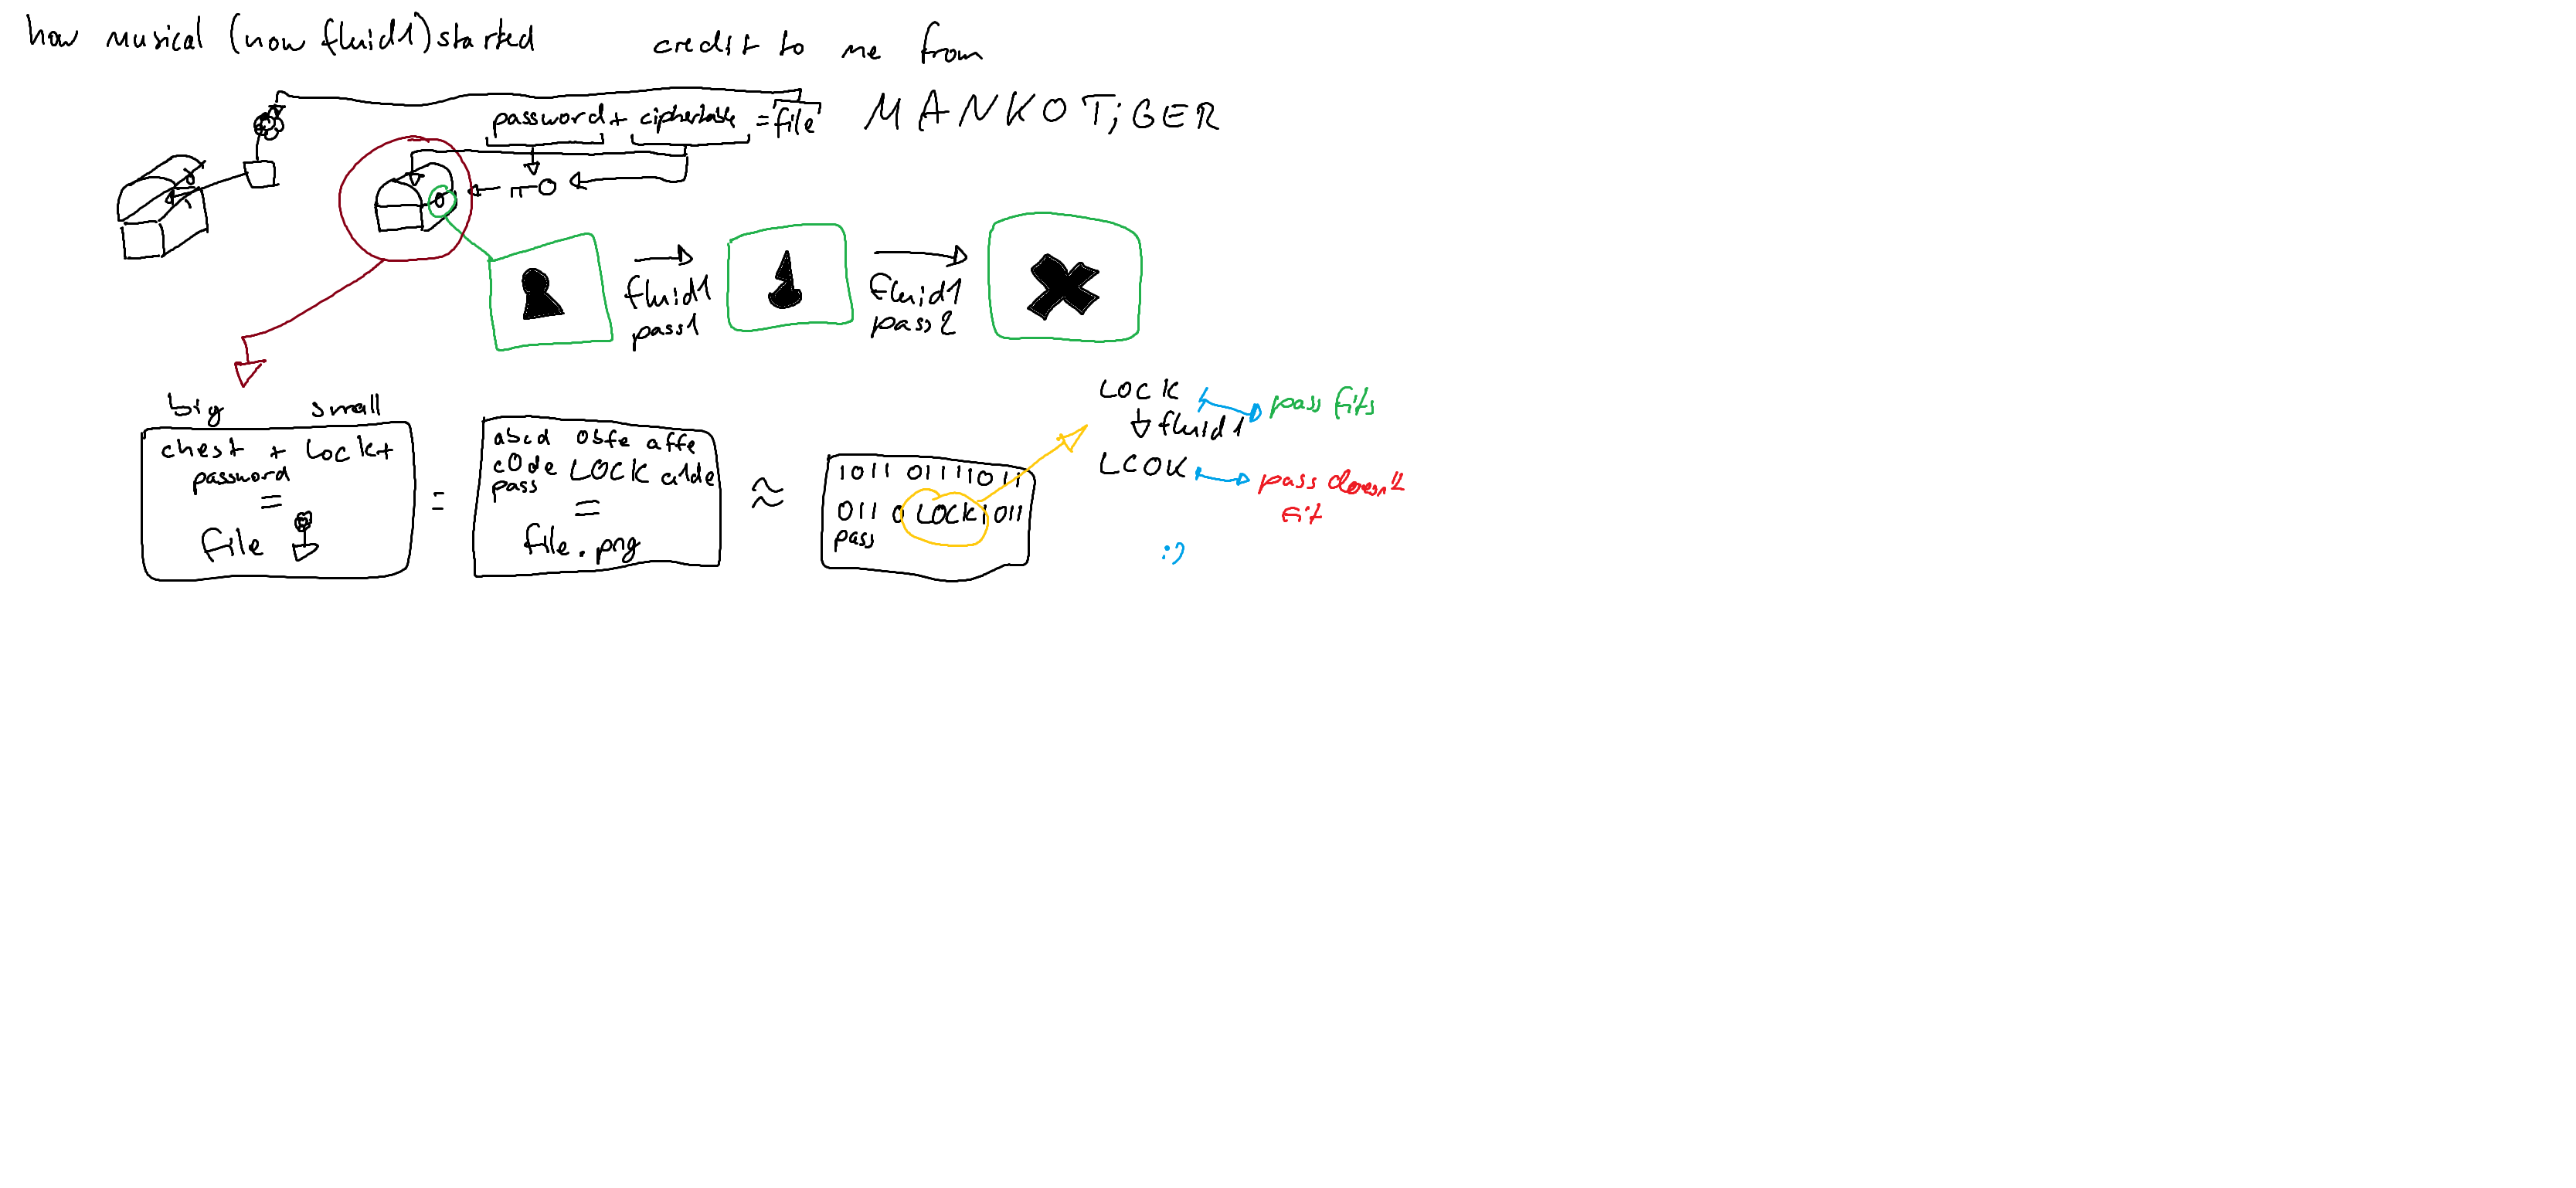 how musical (now fluid1) started
credit to me from
MANKOTiGER
password + ciphertable = file
fluid1
pass1
fluid1
pass2
big small
chest + lock +
password
=
file
=
abcd 0bfe affe
c0de LOCK a1de
pass
=
file.png
≈
1011 01111011
011 0 LOCK 1 011
pass
LOCK
pass fits
fluid1
LCOK
pass doesn't
fit
:)